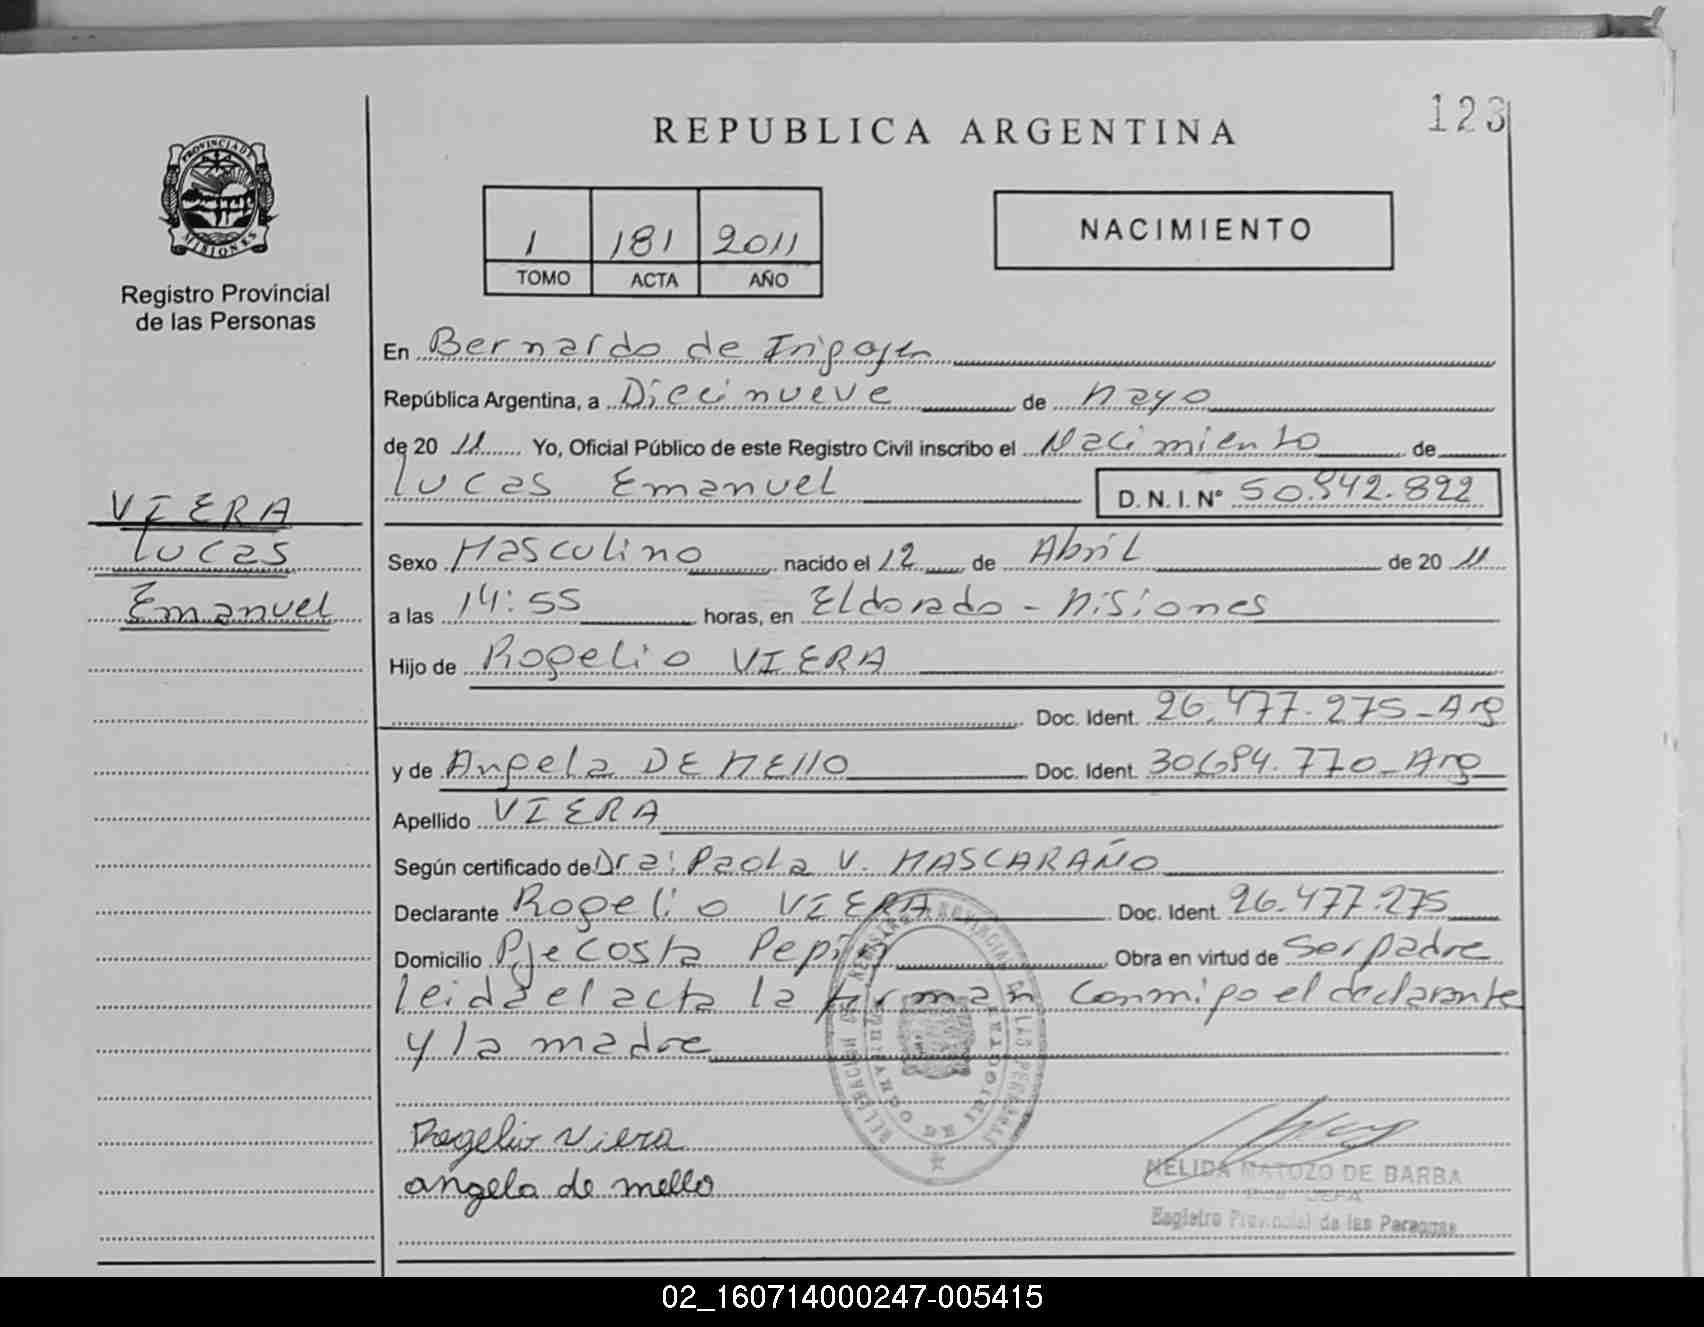 123
REPUBLICA ARGENTINA
PROVINCIA DE
MISIONES
Registro Provincial
de las Personas
1 181 2011
TOMO ACTA AÑO
NACIMIENTO
En Bernardo de Irigoyen
República Argentina, a Diecinueve de Mayo
de 20 11 Yo, Oficial Público de este Registro Civil inscribo el Nacimiento de
Lucas Emanuel D. N. I. N° 50.942.892
VIERA
Lucas
Emanuel
Sexo Masculino nacido el 12 de Abril de 20 11
a las 14:55 horas, en Eldorado - Misiones
Hijo de Rogelio VIERA
Doc. Ident. 26.477.275_Arg
y de Angela DE MELLO Doc. Ident. 30.684.770_Arg
Apellido VIERA
Según certificado de Dra: Paola V. MASCARAÑO
Declarante Rogelio VIERA Doc. Ident. 26.477.275
Domicilio Pje Costa Pepiri Obra en virtud de Ser padre
leida el acta la firman conmigo el declarante
y la madre
Rogelio Viera
angela de mello
NELIDA MATOZO DE BARBA
JEFA
Registro Provincial de las Personas
02_160714000247-005415